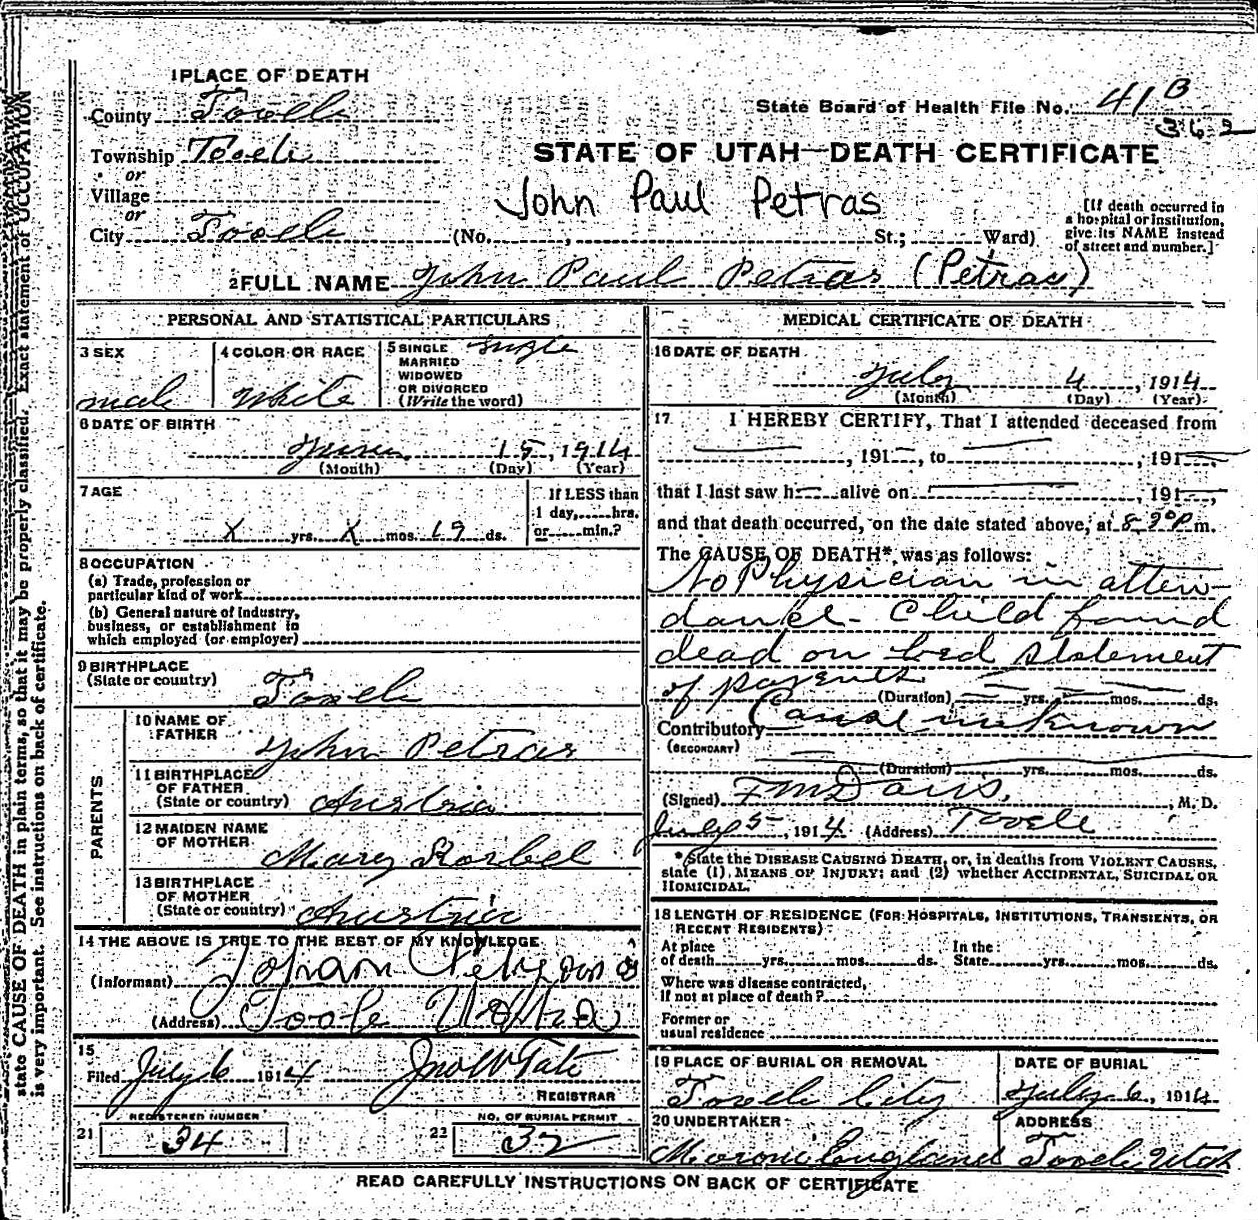 state CAUSE OF DEATH in plain terms, so that it may be properly classified. Exact statement of OCCUPATION
is very important. See instructions on back of certificate.
1 PLACE OF DEATH
County Tooele
State Board of Health File No. 41 B
362
Township Tooele
or
Village
or
City Tooele (No. , St.; Ward)
STATE OF UTAH—DEATH CERTIFICATE
John Paul Petras
[If death occurred in
a hospital or institution,
give its NAME instead
of street and number.]
2 FULL NAME John Paul Petras (Petras)
PERSONAL AND STATISTICAL PARTICULARS
3 SEX
male
4 COLOR OR RACE
White
5 SINGLE single
MARRIED
WIDOWED
OR DIVORCED
(Write the word)
6 DATE OF BIRTH
June 15, 1914
(Month) (Day) (Year)
7 AGE
X yrs. X mos. 19 ds.
If LESS than
1 day, hrs.
or min.?
8 OCCUPATION
(a) Trade, profession or
particular kind of work
(b) General nature of Industry,
business, or establishment in
which employed (or employer)
9 BIRTHPLACE
(State or country) Tooele
PARENTS
10 NAME OF
FATHER John Petras
11 BIRTHPLACE
OF FATHER
(State or country) Austria
12 MAIDEN NAME
OF MOTHER Mary Korbel
13 BIRTHPLACE
OF MOTHER
(State or country) Austria
14 THE ABOVE IS TRUE TO THE BEST OF MY KNOWLEDGE
(Informant) Johan
(Address) Tooele
15
Filed July 6 1914 Jno W Tate
REGISTRAR
REGISTERED NUMBER
21 34
NO. OF BURIAL PERMIT
22 32
MEDICAL CERTIFICATE OF DEATH
16 DATE OF DEATH
July 4, 1914
(Month) (Day) (Year)
17 I HEREBY CERTIFY, That I attended deceased from
, 191 , to , 191
that I last saw h alive on , 191 ,
and that death occurred, on the date stated above, at 8 P m.
The CAUSE OF DEATH* was as follows:
No Physician in atten-
dance - Child found
dead on bed statement
of parents
(Duration) yrs. mos. ds.
Contributory Cause unknown
(SECONDARY)
(Duration) yrs. mos. ds.
(Signed) F M Davis, M. D.
July 5, 1914 (Address) Tooele
*State the DISEASE CAUSING DEATH, or, in deaths from VIOLENT CAUSES,
state (1) MEANS OF INJURY; and (2) whether ACCIDENTAL, SUICIDAL OR
HOMICIDAL.
18 LENGTH OF RESIDENCE (FOR HOSPITALS, INSTITUTIONS, TRANSIENTS, OR
RECENT RESIDENTS)
At place In the
of death yrs. mos. ds. State yrs. mos. ds.
Where was disease contracted,
If not at place of death?
Former or
usual residence
19 PLACE OF BURIAL OR REMOVAL
Tooele City
DATE OF BURIAL
July 6, 1914
20 UNDERTAKER
Moroni England
ADDRESS
Tooele, Utah
READ CAREFULLY INSTRUCTIONS ON BACK OF CERTIFICATE